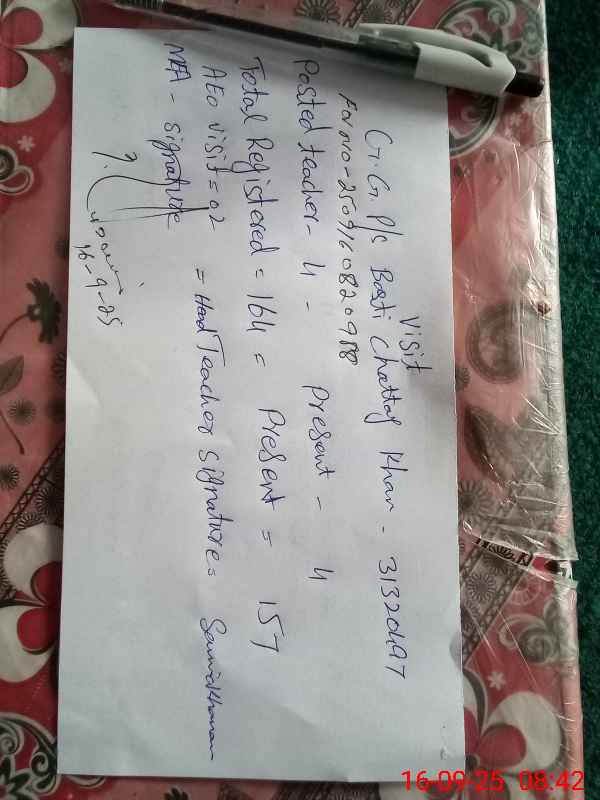 Visit
G.G.P/S Basti Chattay Khan - 31320497
Form no - 2509160820988
Posted teacher - 4 - Present - 4
Total Registered = 164 = Present = 157
AEO visit = 02 = Head Teacher Signature =
MEA - signature
16-9-25
16-09-25 08:42